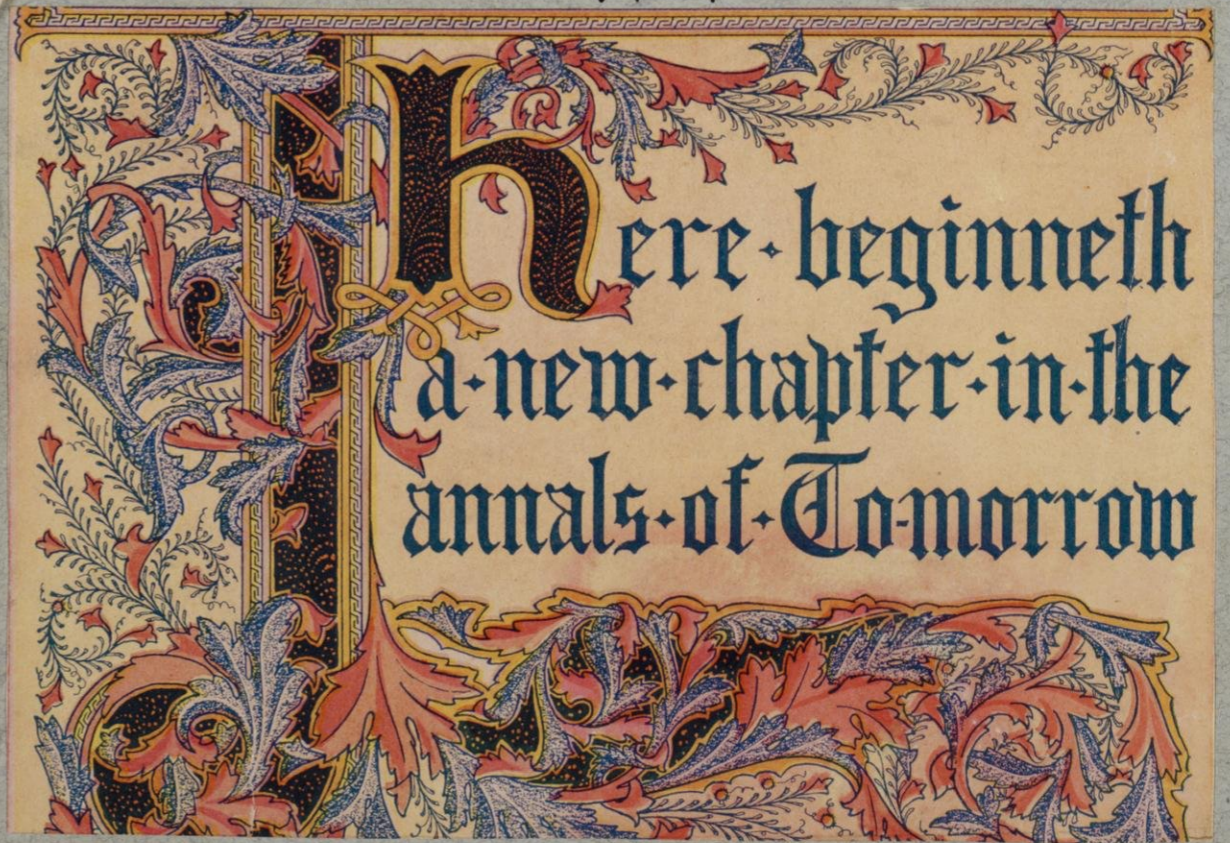 here·beginneth
a·new·chapter·in·the
annals·of·To-morrow